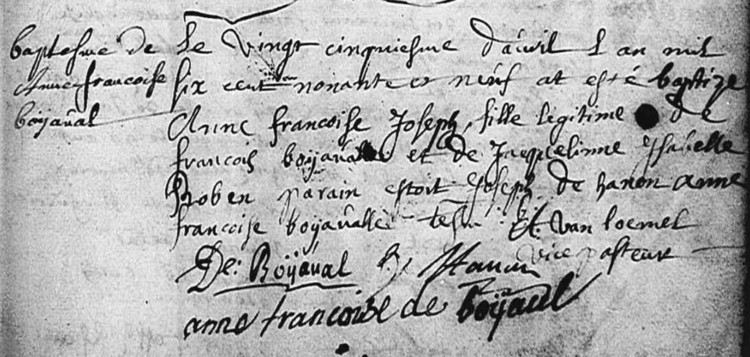 baptesme de
Anne francoise
boijaval
Le vingt cinquiesme d'avril l an mil
six cent nonante et neuf at esté baptize
Anne francoise Joseph, fille legitime de
francois boijavalle et de Jacquelinne Ysabelle
Roben parain estoit Joseph de hanon anne
francoise boijavalle tesm. van loemel
vice pasteur
De: Boijaval
anne francoise de boijaul